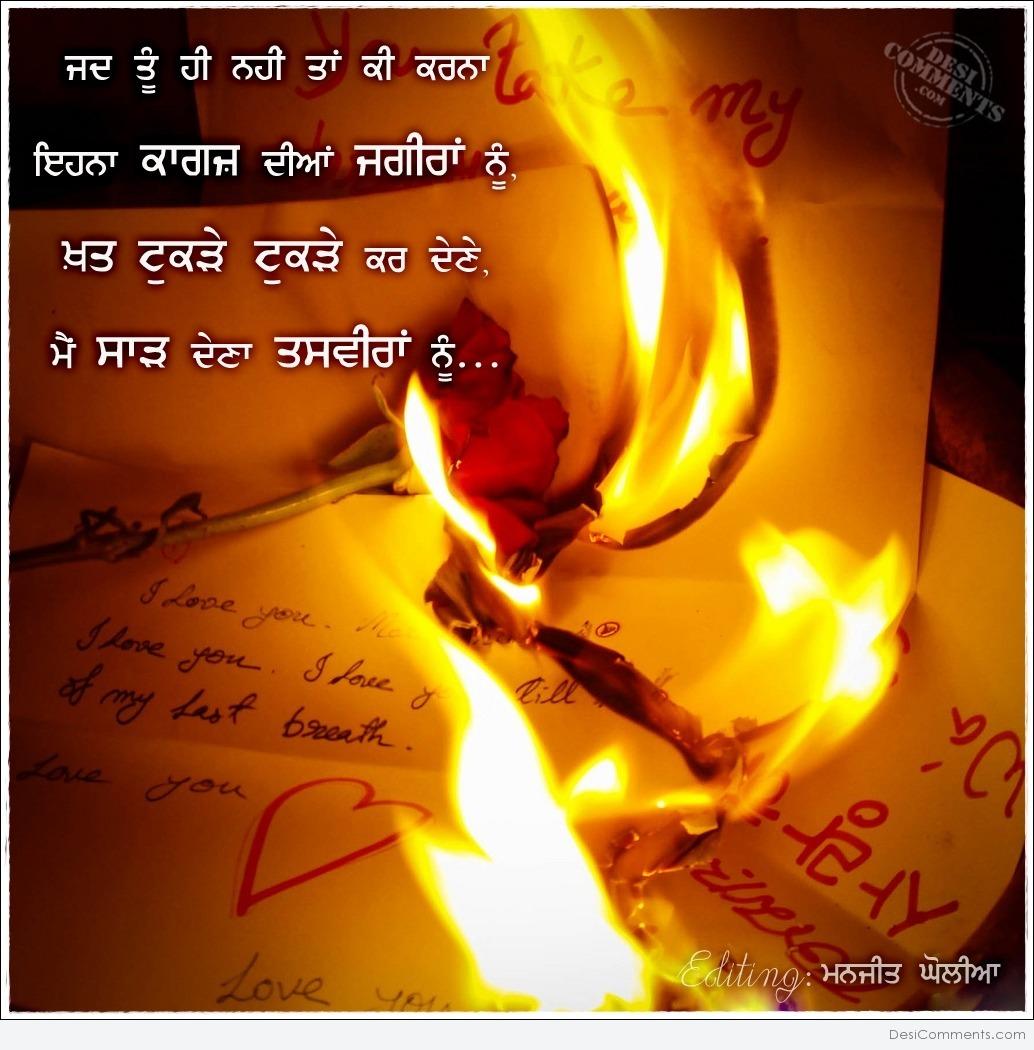 ਜਦ ਤੂੰ ਹੀ ਨਹੀਂ ਤਾਂ ਕੀ ਕਰਨਾ
ਇਹਨਾ ਕਾਗਜ਼ ਦੀਆਂ ਜਗੀਰਾਂ ਨੂੰ,
ਖ਼ਤ ਟੁਕੜੇ ਟੁਕੜੇ ਕਰ ਦੇਣੇ,
ਮੈਂ ਸਾੜ ਦੇਣਾ ਤਸਵੀਰਾਂ ਨੂੰ...
You Take my
DESI COMMENTS .COM
I Love you.
I Love you. I Love till
of my Last breath.
Love you
Love you
Editing: ਮਨਜੀਤ ਘੋਲੀਆ
DesiComments.com